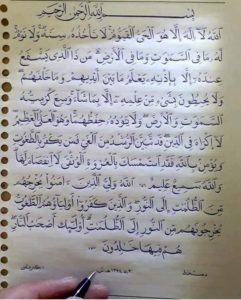 بسم الله الرحمن الرحیم
الله لا اله إلا هو الحي القيوم لا تأخذه سنة ولا نوم
له ما في السموات وما في الأرض من ذا الذي يشفع
عنده إلا بإذنه يعلم ما بين أيديهم وما خلفهم
ولا يحيطون بشيء من علمه إلا بما شاء وسع كرسيه
السموات والأرض ولا يؤده حفظهما وهو العلي العظيم
لا إكراه في الدين قد تبين الرشد من الغي فمن يكفر بالطاغوت
ويؤمن بالله فقد استمسك بالعروة الوثقى لا انفصام لها
والله سميع عليم الله ولي الذين آمنوا يخرجهم
من الظلمات إلى النور والذين كفروا أولياؤهم الطاغوت
يخرجونهم من النور إلى الظلمات أولئك أصحاب النار
هم فيها خالدون